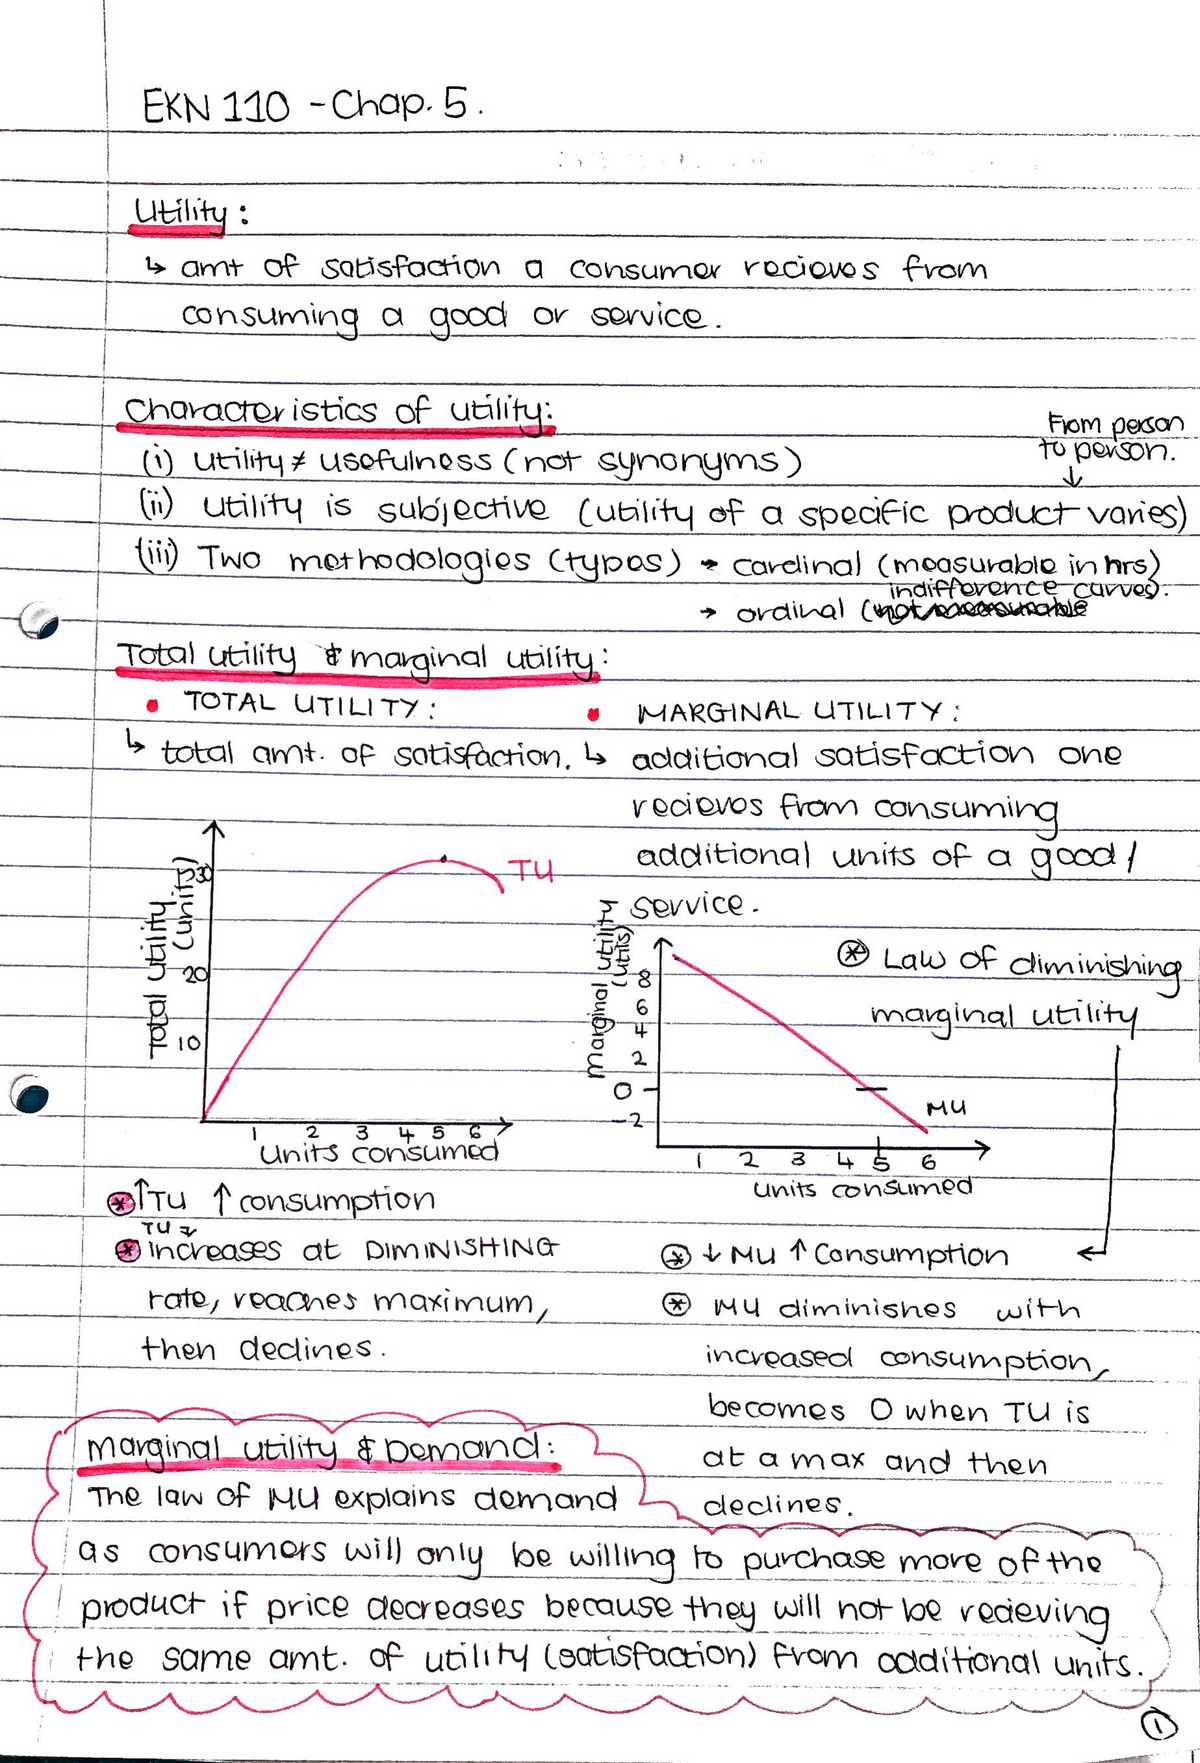 EKN 110 - Chap. 5.
Utility:
↳ amt of satisfaction a consumer recieves from
consuming a good or service.
Characteristics of utility:
(i) utility ≠ usefulness (not synonyms)
From person
to person.
↓
(ii) utility is subjective (utility of a specific product varies)
(iii) Two methodologies (types) → cardinal (measurable in hrs)
indifference curves).
→ ordinal (not measurable
Total utility & marginal utility:
• TOTAL UTILITY:
↳ total amt. of satisfaction.
• MARGINAL UTILITY:
↳ additional satisfaction one
recieves from consuming
additional units of a good /
service.
Total utility
(units)
30
20
10
TU
1 2 3 4 5 6
Units consumed
⊛ Law of diminishing
marginal utility
Marginal utility
(utils)
8
6
4
2
0
-2
MU
1 2 3 4 5 6
Units consumed
⊛ ↑TU ↑ consumption
TU
⊛ increases at DIMINISHING
rate, reaches maximum,
then declines.
⊛ ↓ MU ↑ Consumption
⊛ MU diminishes with
increased consumption,
becomes 0 when TU is
at a max and then
declines.
Marginal utility & Demand:
The law of MU explains demand
as consumers will only be willing to purchase more of the
product if price decreases because they will not be recieving
the same amt. of utility (satisfaction) from additional units.
1